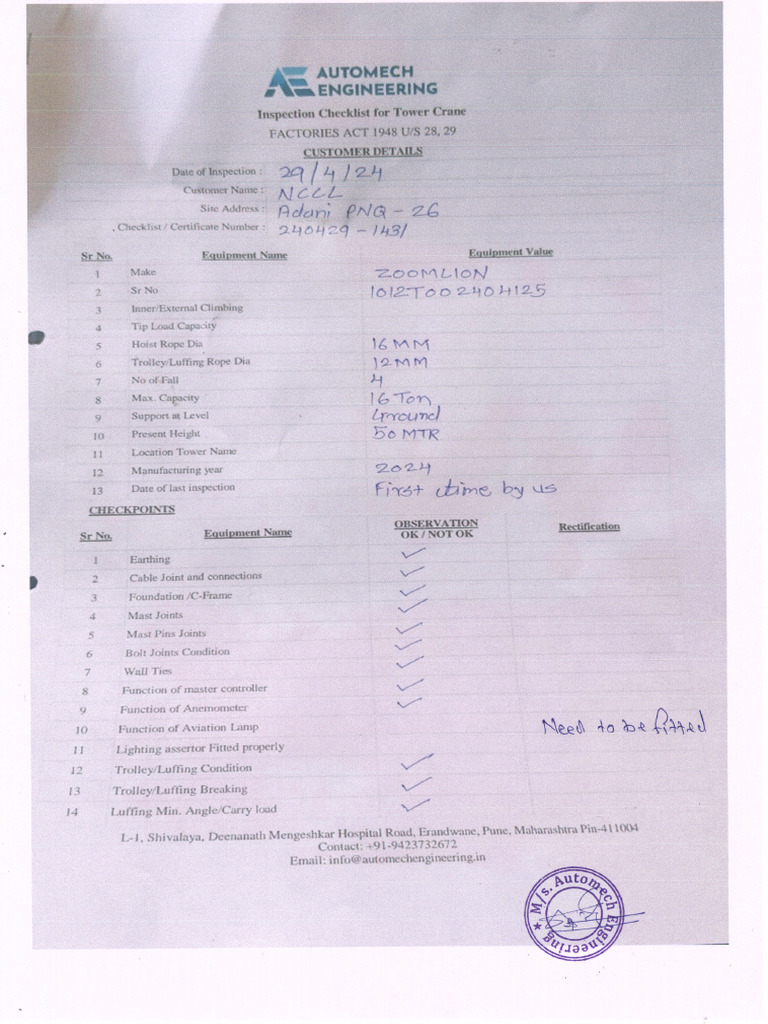 AUTOMECH
ENGINEERING
Inspection Checklist for Tower Crane
FACTORIES ACT 1948 U/S 28, 29
CUSTOMER DETAILS
Date of Inspection : 29/4/24
Customer Name : NCCL
Site Address : Adani PNQ - 26
Checklist / Certificate Number : 240429-1431
Sr No. Equipment Name Equipment Value
1 Make ZOOMLION
2 Sr No 1012T002404125
3 Inner/External Climbing
4 Tip Load Capacity
5 Hoist Rope Dia 16 MM
6 Trolley/Luffing Rope Dia 12 MM
7 No of Fall 4
8 Max. Capacity 16 Ton
9 Support at Level Ground
10 Present Height 50 MTR
11 Location Tower Name
12 Manufacturing year 2024
13 Date of last inspection First time by us
CHECKPOINTS
Sr No. Equipment Name OBSERVATION OK / NOT OK Rectification
1 Earthing ✓
2 Cable Joint and connections ✓
3 Foundation /C-Frame ✓
4 Mast Joints ✓
5 Mast Pins Joints ✓
6 Bolt Joints Condition ✓
7 Wall Ties ✓
8 Function of master controller ✓
9 Function of Anemometer ✓
10 Function of Aviation Lamp Need to be fitted
11 Lighting assertor Fitted properly
12 Trolley/Luffing Condition ✓
13 Trolley/Luffing Breaking ✓
14 Luffing Min. Angle/Carry load ✓
L-1, Shivalaya, Deenanath Mengeshkar Hospital Road, Erandwane, Pune, Maharashtra Pin-411004
Contact: +91-9423732672
Email: info@automechengineering.in
M/s. Automech Engineering